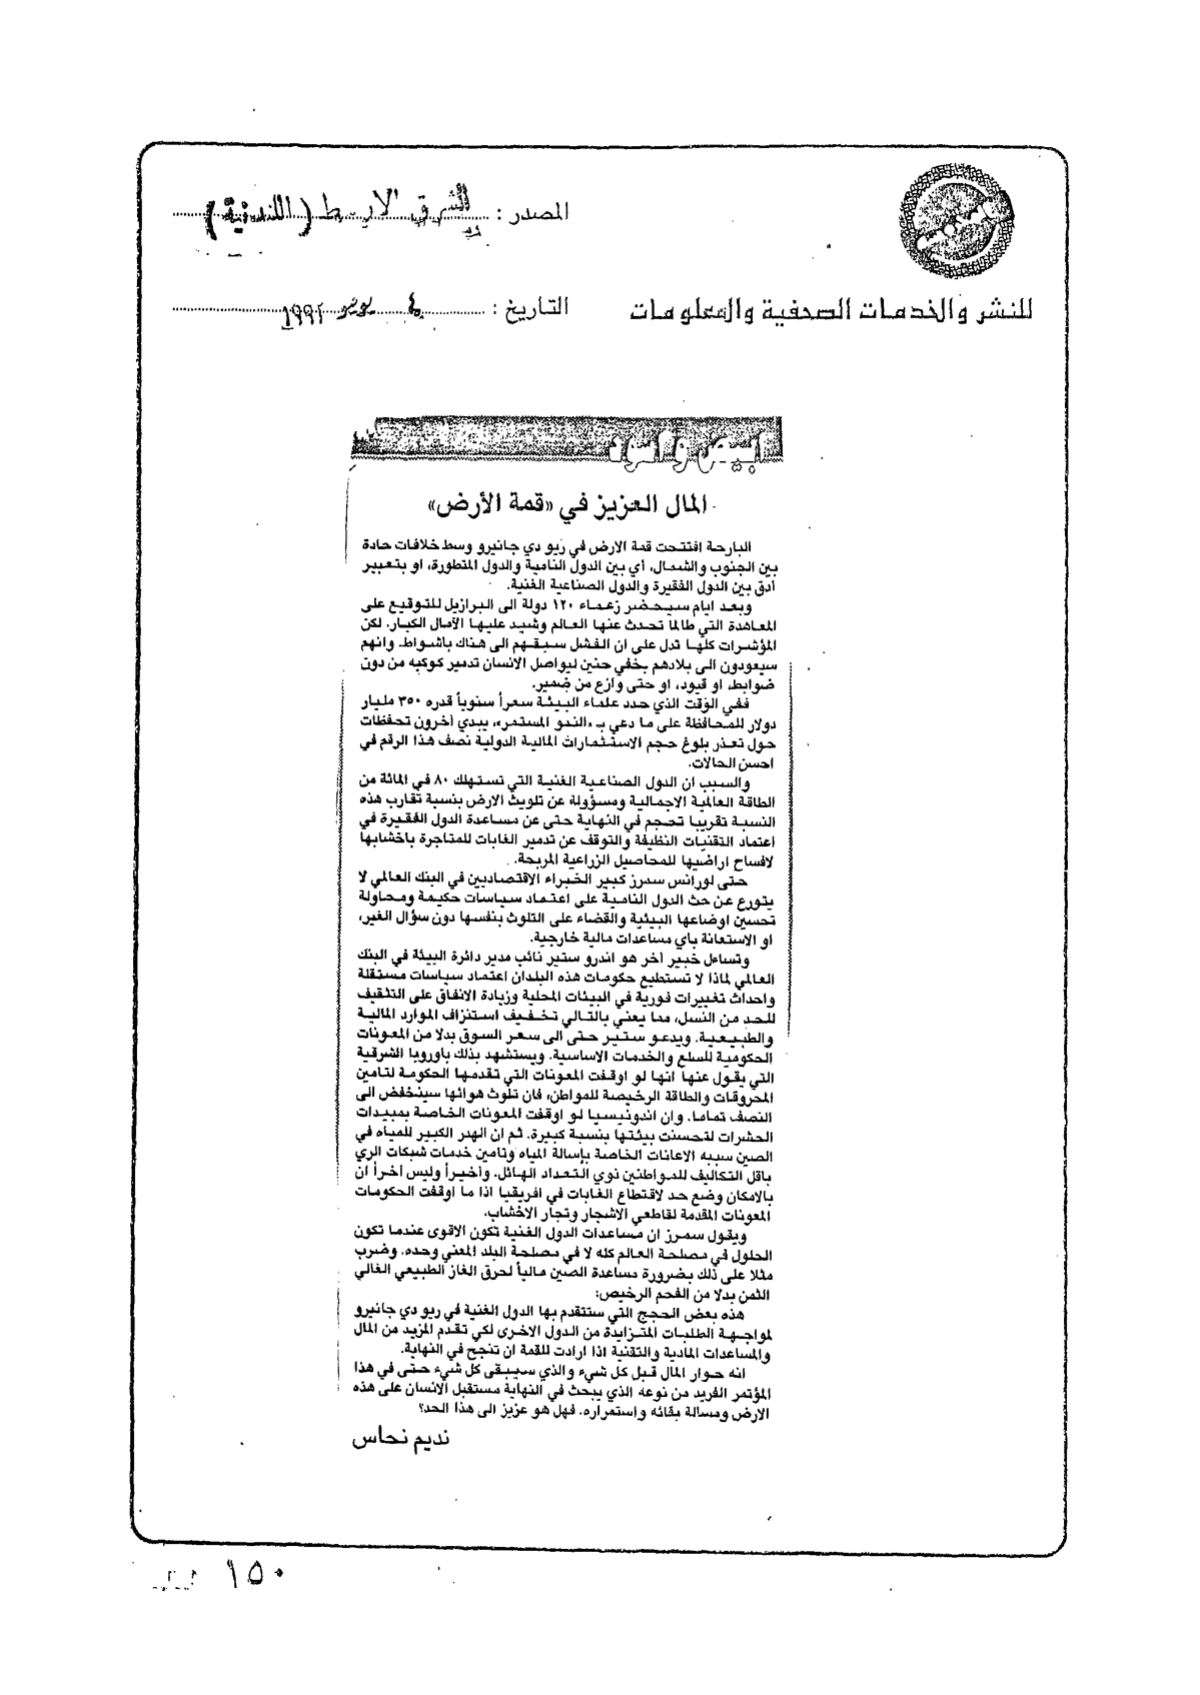 المصدر : الشرق الاوسط (اللندنية)
للنشر والخدمات الصحفية والمعلومات
التاريخ : ٤ يونيو ١٩٩٢
ابيض واسود
المال العزيز في «قمة الأرض»
البارحة افتتحت قمة الارض في ريو دي جانيرو وسط خلافات حادة
بين الجنوب والشمال، أي بين الدول النامية والدول المتطورة، او بتعبير
أدق بين الدول الفقيرة والدول الصناعية الغنية.
وبعد ايام سيحضر زعماء ١٢٠ دولة الى البرازيل للتوقيع على
المعاهدة التي طالما تحدث عنها العالم وشيد عليها الآمال الكبار. لكن
المؤشرات كلها تدل على ان الفشل سبقهم الى هناك باشواط. وانهم
سيعودون الى بلادهم بخفي حنين ليواصل الانسان تدمير كوكبه من دون
ضوابط، او قيود، او حتى وازع من ضمير.
ففي الوقت الذي حدد علماء البيئة سعراً سنوياً قدره ٣٥٠ مليار
دولار للمحافظة على ما دعي بـ «النمو المستمر»، يبدي آخرون تحفظات
حول تعذر بلوغ حجم الاستثمارات المالية الدولية نصف هذا الرقم في
احسن الحالات.
والسبب ان الدول الصناعية الغنية التي تستهلك ٨٠ في المائة من
الطاقة العالمية الاجمالية ومسؤولة عن تلويث الارض بنسبة تقارب هذه
النسبة تقريبا تحجم في النهاية حتى عن مساعدة الدول الفقيرة في
اعتماد التقنيات النظيفة والتوقف عن تدمير الغابات للمتاجرة باخشابها
لافساح اراضيها للمحاصيل الزراعية المربحة.
حتى لورانس سمرز كبير الخبراء الاقتصاديين في البنك العالمي لا
يتورع عن حث الدول النامية على اعتماد سياسات حكيمة ومحاولة
تحسين اوضاعها البيئية والقضاء على التلوث بنفسها دون سؤال الغير،
او الاستعانة باي مساعدات مالية خارجية.
وتساءل خبير آخر هو اندرو ستير نائب مدير دائرة البيئة في البنك
العالمي لماذا لا تستطيع حكومات هذه البلدان اعتماد سياسات مستقلة
واحداث تغييرات فورية في البيئات المحلية وزيادة الانفاق على التثقيف
للحد من النسل، مما يعني بالتالي تخفيف استنزاف الموارد المالية
والطبيعية. ويدعو ستير حتى الى سعر السوق بدلا من المعونات
الحكومية للسلع والخدمات الاساسية. ويستشهد بذلك باوروبا الشرقية
التي يقول عنها انها لو اوقفت المعونات التي تقدمها الحكومة لتامين
المحروقات والطاقة الرخيصة للمواطن، فان تلوث هوائها سينخفض الى
النصف تماما. وان اندونيسيا لو اوقفت المعونات الخاصة بمبيدات
الحشرات لتحسنت بيئتها بنسبة كبيرة. ثم ان الهدر الكبير للمياه في
الصين سببه الاعانات الخاصة بإسالة المياه وتامين خدمات شبكات الري
باقل التكاليف للمواطنين نوي التعداد الهائل. وأخيراً وليس آخراً ان
بالامكان وضع حد لاقتطاع الغابات في افريقيا اذا ما اوقفت الحكومات
المعونات المقدمة لقاطعي الاشجار وتجار الاخشاب.
ويقول سمرز ان مساعدات الدول الغنية تكون الاقوى عندما تكون
الحلول في مصلحة العالم كله لا في مصلحة البلد المعني وحده. وضرب
مثلا على ذلك بضرورة مساعدة الصين مالياً لحرق الغاز الطبيعي الغالي
الثمن بدلا من الفحم الرخيص:
هذه بعض الحجج التي ستتقدم بها الدول الغنية في ريو دي جانيرو
لمواجهة الطلبات المتزايدة من الدول الاخرى لكي تقدم المزيد من المال
والمساعدات المادية والتقنية اذا ارادت للقمة ان تنجح في النهاية.
انه حوار المال قبل كل شيء والذي سيبقى كل شيء حتى في هذا
المؤتمر الفريد من نوعه الذي يبحث في النهاية مستقبل الانسان على هذه
الارض ومسالة بقائه واستمراره. فهل هو عزيز الى هذا الحد؟
نديم نحاس
١٥٠